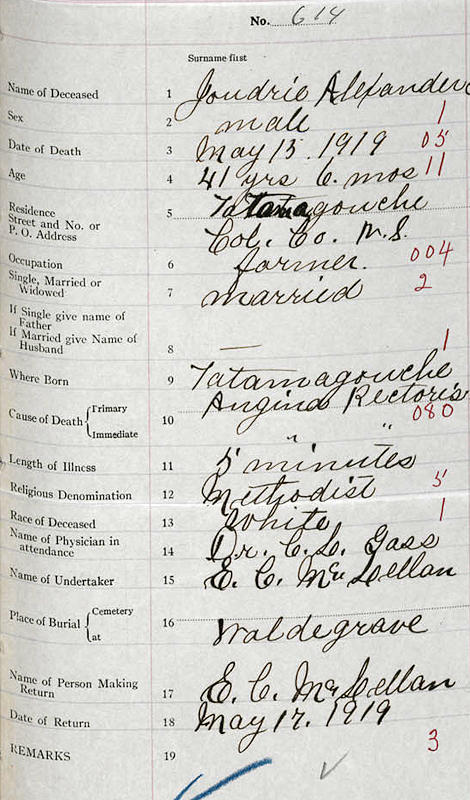 No. 614
Surname first
Name of Deceased 1 Joudrie Alexander
Sex 2 male 1
Date of Death 3 May 15. 1919 05
Age 4 41 yrs 6. mos 11
Residence
Street and No. or 5 Tatamagouche
P. O. Address Col. Co. N.S.
Occupation 6 farmer. 004
Single, Married or
Widowed 7 married 2
If Single give name of
Father
If Married give Name of
Husband 8 — 1
Where Born 9 Tatamagouche
Cause of Death { Primary 10 Angina Pectoris 080
Immediate " "
Length of Illness 11 5 minutes
Religious Denomination 12 Methodist 5
Race of Deceased 13 White 1
Name of Physician in
attendance 14 Dr. C. L. Gass
Name of Undertaker 15 E. C. McLellan
Place of Burial { Cemetery 16
at Waldegrave
Name of Person Making
Return 17 E. C. McLellan
Date of Return 18 May 17. 1919
REMARKS 19 3